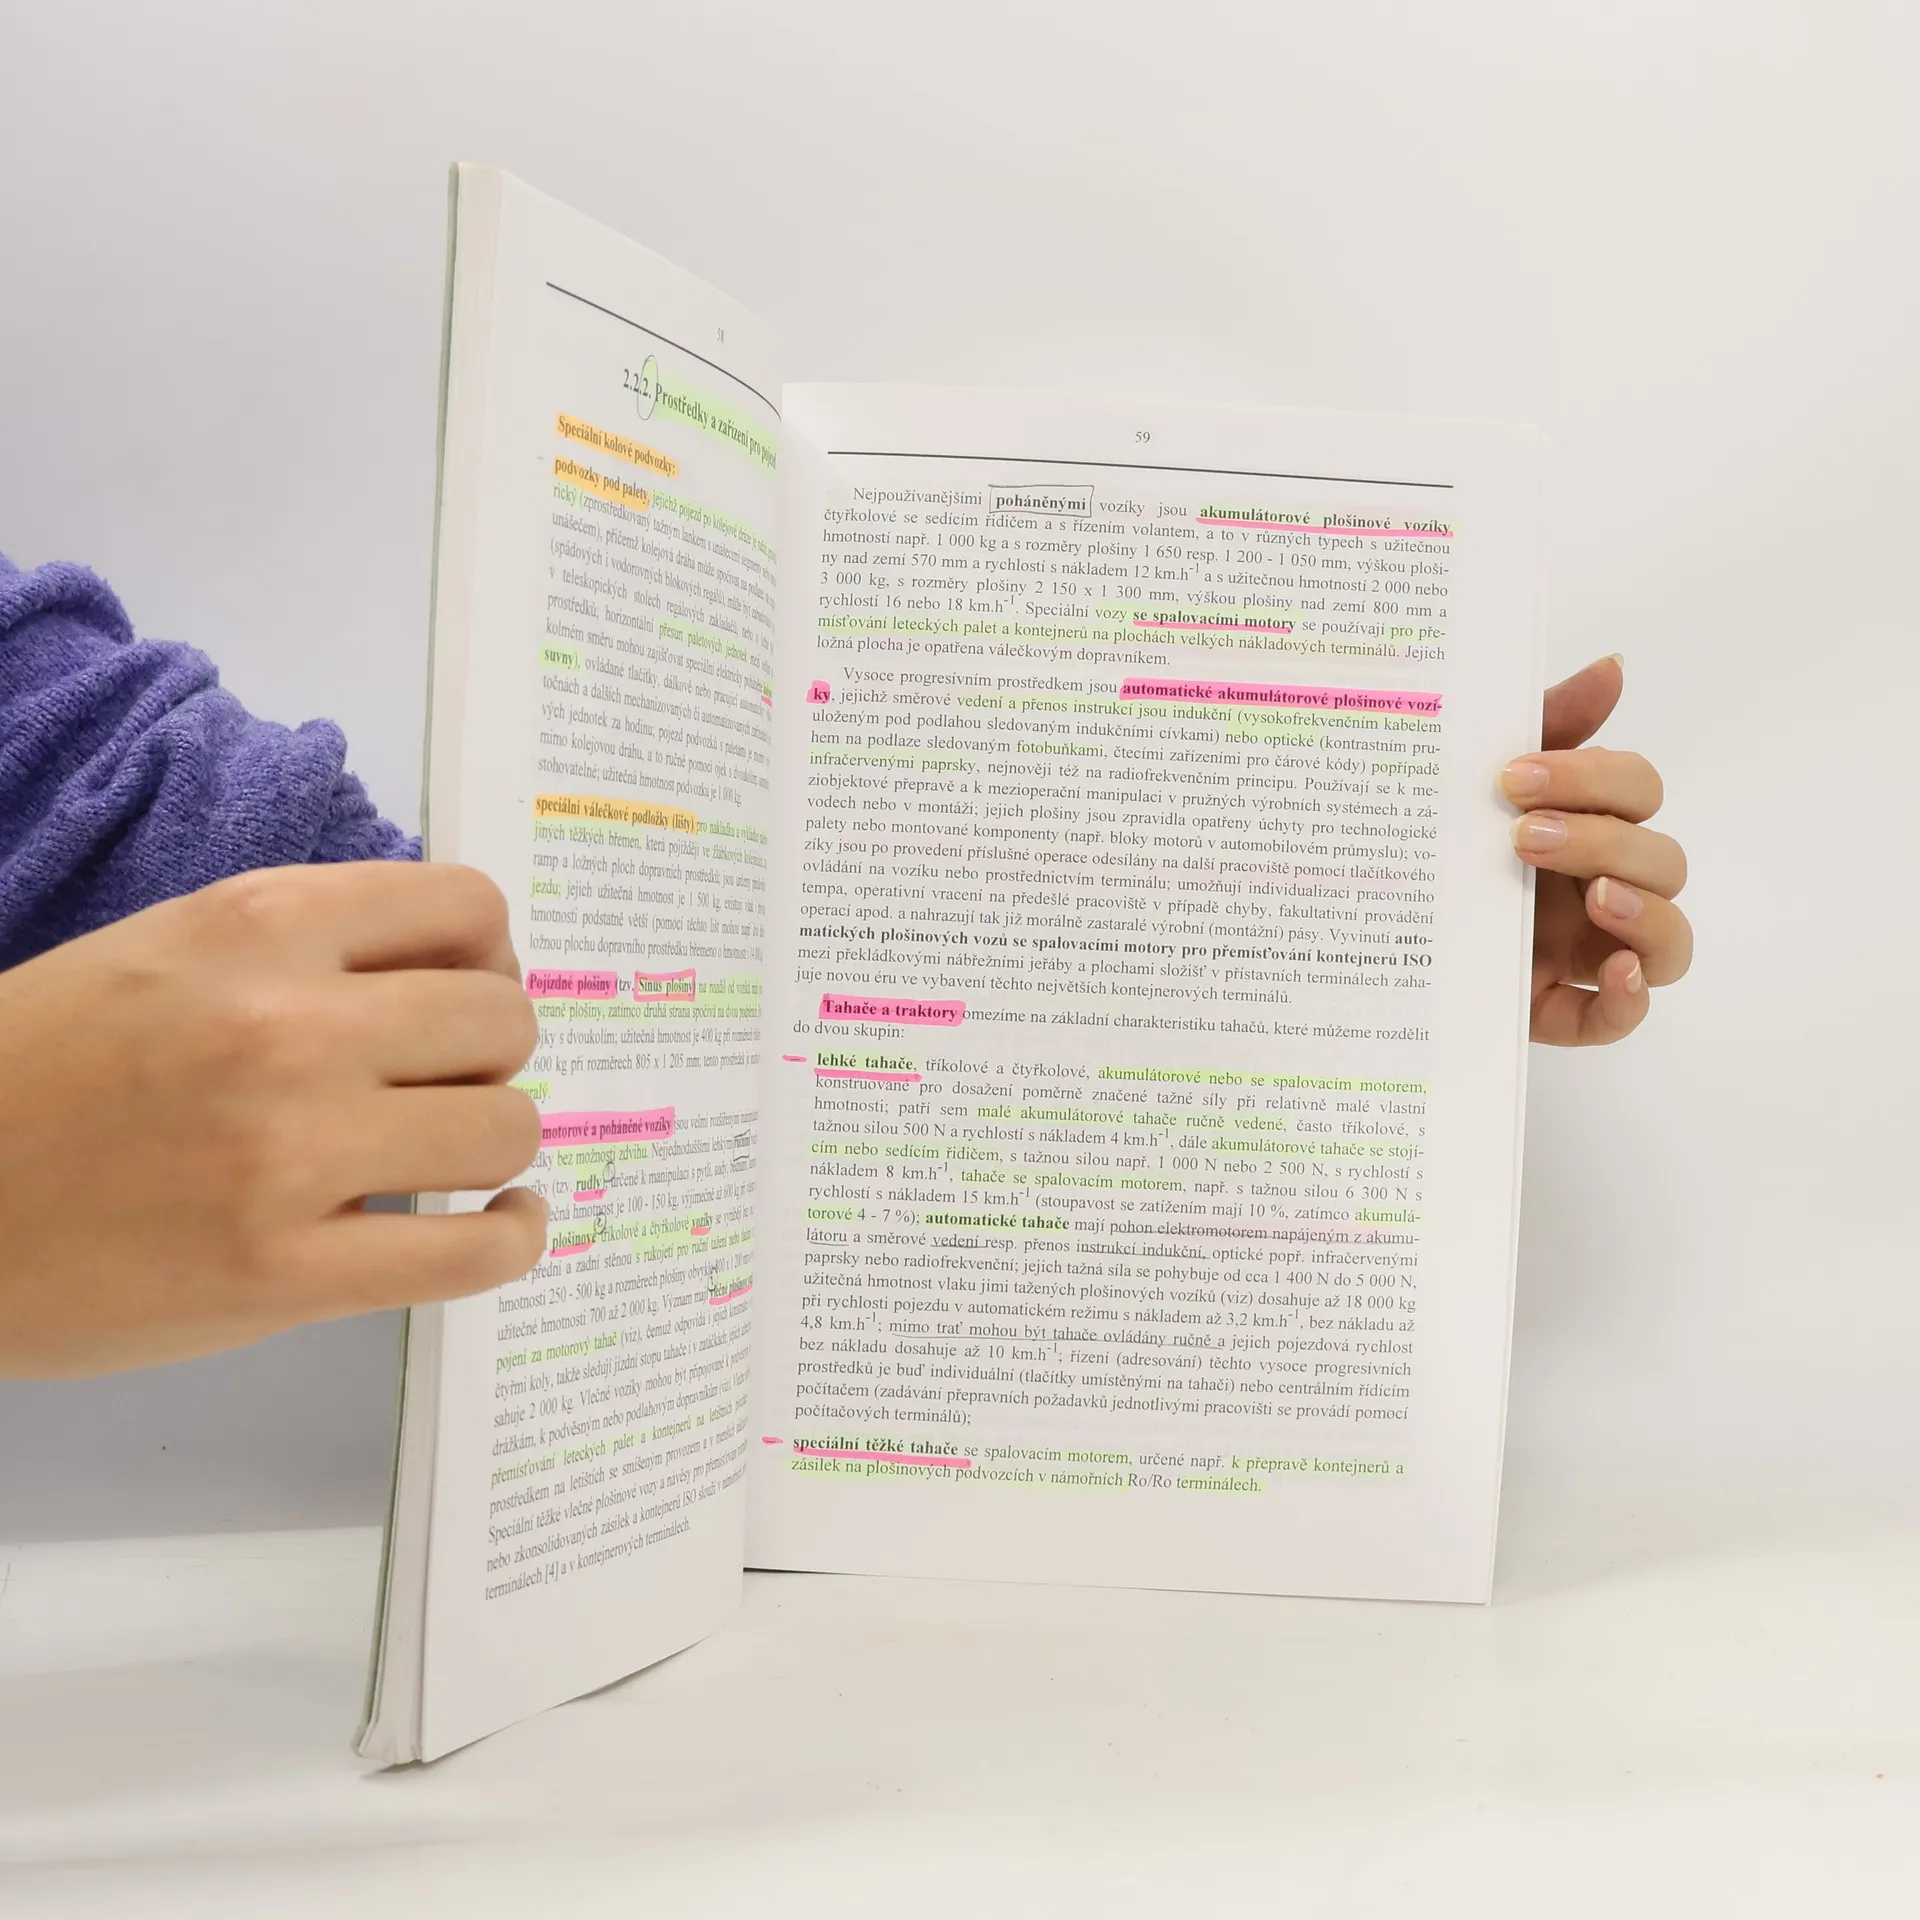 58
2.2.2. Prostředky a zařízení pro pojezd
Speciální kolové podvozky:
podvozky pod palety, jejichž pojezd po kolejové dráze je
rický (zprostředkovaný tažným lankem s unášecími segmenty nebo
unášečem), přičemž kolejová dráha může spočívat na podlaze
(spádových i vodorovných blokových regálů), může být
v teleskopických stolech regálových zakladačů, nebo v
prostředků; horizontální přesun paletových jednotek mezi
kolmém směru mohou zajišťovat speciální elektricky poháněné
suvny), ovládané tlačítky, dálkově nebo pracující automaticky
točnách a dalších mechanizovaných či automatizovaných
vých jednotek za hodinu; pojezd podvozků s paletami je
mimo kolejovou dráhu, a to ručně pomocí ojek s dvoukolím
stohovatelné; užitečná hmotnost podvozku je 1 000 kg.
speciální válečkové podložky (lišty) pro nakládku a vykládku
jiných těžkých břemen, která pojíždějí ve žlábkových kolejnicích
ramp a ložných ploch dopravních prostředků; jsou určeny
jezdu; jejich užitečná hmotnost je 1 500 kg, existují však i pro
hmotnosti podstatně větší (pomocí těchto lišt mohou např.
ložnou plochu dopravního prostředku břemeno o hmotnosti
Pojízdné plošiny (tzv. Sinus plošiny) na rozdíl od vozíků mají
straně plošiny, zatímco druhá strana spočívá na dvou podpěrách.
jky s dvoukolím; užitečná hmotnost je 400 kg při rozměrech
600 kg při rozměrech 805 x 1 205 mm; tento prostředek je
ralý.
motorové a poháněné vozíky jsou velmi rozšířenými
edky bez možnosti zdvihu. Nejjednoduššími lehkými ručními
zíky (tzv. rudly) určené k manipulaci s pytli, sudy, bednami,
ečná hmotnost je 100 - 150 kg, výjimečně až 600 kg při
plošinové tříkolové a čtyřkolové vozíky se vyrábějí
přední a zadní stěnou s rukojetí pro ruční tažení nebo
hmotnosti 250 - 500 kg a rozměrech plošiny obvykle 800 x 1 200 mm
užitečné hmotnosti 700 až 2 000 kg. Význam mají vlečné plošinové
pojení za motorový tahač (viz), čemuž odpovídá i jejich konstrukce
čtyřmi koly, takže sledují jízdní stopu tahače i v zatáčkách; jejich
sahuje 2 000 kg. Vlečné vozíky mohou být připojované k podvěsným
drážkám, k podvěsným nebo podlahovým dopravníkům (viz).
přemísťování leteckých palet a kontejnerů na letištních plochách
prostředkem na letištích se smíšeným provozem a v menších
Speciální těžké vlečné plošinové vozy a návěsy pro přemísťování
nebo zkonsolidovaných zásilek a kontejnerů ISO slouží v námořních
terminálech [4] a v kontejnerových terminálech.
59
Nejpoužívanějšími poháněnými vozíky jsou akumulátorové plošinové vozíky
čtyřkolové se sedícím řidičem a s řízením volantem, a to v různých typech s užitečnou
hmotností např. 1 000 kg a s rozměry plošiny 1 650 resp. 1 200 - 1 050 mm, výškou ploši-
ny nad zemí 570 mm a rychlostí s nákladem 12 km.h⁻¹ a s užitečnou hmotností 2 000 nebo
3 000 kg, s rozměry plošiny 2 150 x 1 300 mm, výškou plošiny nad zemí 800 mm a
rychlostí 16 nebo 18 km.h⁻¹. Speciální vozy se spalovacími motory se používají pro pře-
mísťování leteckých palet a kontejnerů na plochách velkých nákladových terminálů. Jejich
ložná plocha je opatřena válečkovým dopravníkem.
Vysoce progresívním prostředkem jsou automatické akumulátorové plošinové vozí-
ky, jejichž směrové vedení a přenos instrukcí jsou indukční (vysokofrekvenčním kabelem
uloženým pod podlahou sledovaným indukčními cívkami) nebo optické (kontrastním pru-
hem na podlaze sledovaným fotobuňkami, čtecími zařízeními pro čárové kódy) popřípadě
infračervenými paprsky, nejnověji též na radiofrekvenčním principu. Používají se k me-
ziobjektové přepravě a k mezioperační manipulaci v pružných výrobních systémech a zá-
vodech nebo v montáži; jejich plošiny jsou zpravidla opatřeny úchyty pro technologické
palety nebo montované komponenty (např. bloky motorů v automobilovém průmyslu); vo-
zíky jsou po provedení příslušné operace odesílány na další pracoviště pomocí tlačítkového
ovládání na vozíku nebo prostřednictvím terminálu; umožňují individualizaci pracovního
tempa, operativní vracení na předešlé pracoviště v případě chyby, fakultativní provádění
operací apod. a nahrazují tak již morálně zastaralé výrobní (montážní) pásy. Vyvinutí auto-
matických plošinových vozů se spalovacími motory pro přemísťování kontejnerů ISO
mezi překládkovými nábřežními jeřáby a plochami složišť v přístavních terminálech zaha-
juje novou éru ve vybavení těchto největších kontejnerových terminálů.
Tahače a traktory omezíme na základní charakteristiku tahačů, které můžeme rozdělit
do dvou skupin:
lehké tahače, tříkolové a čtyřkolové, akumulátorové nebo se spalovacím motorem,
konstruované pro dosažení poměrně značené tažné síly při relativně malé vlastní
hmotnosti; patří sem malé akumulátorové tahače ručně vedené, často tříkolové, s
tažnou silou 500 N a rychlostí s nákladem 4 km.h⁻¹, dále akumulátorové tahače se stojí-
cím nebo sedícím řidičem, s tažnou silou např. 1 000 N nebo 2 500 N, s rychlostí s
nákladem 8 km.h⁻¹, tahače se spalovacím motorem, např. s tažnou silou 6 300 N s
rychlostí s nákladem 15 km.h⁻¹ (stoupavost se zatížením mají 10 %, zatímco akumulá-
torové 4 - 7 %); automatické tahače mají pohon elektromotorem napájeným z akumu-
látoru a směrové vedení resp. přenos instrukcí indukční, optické popř. infračervenými
paprsky nebo radiofrekvenční; jejich tažná síla se pohybuje od cca 1 400 N do 5 000 N,
užitečná hmotnost vlaku jimi tažených plošinových vozíků (viz) dosahuje až 18 000 kg
při rychlosti pojezdu v automatickém režimu s nákladem až 3,2 km.h⁻¹, bez nákladu až
4,8 km.h⁻¹; mimo trať mohou být tahače ovládány ručně a jejich pojezdová rychlost
bez nákladu dosahuje až 10 km.h⁻¹; řízení (adresování) těchto vysoce progresívních
prostředků je buď individuální (tlačítky umístěnými na tahači) nebo centrálním řídicím
počítačem (zadávání přepravních požadavků jednotlivými pracovišti se provádí pomocí
počítačových terminálů);
speciální těžké tahače se spalovacím motorem, určené např. k přepravě kontejnerů a
zásilek na plošinových podvozcích v námořních Ro/Ro terminálech.